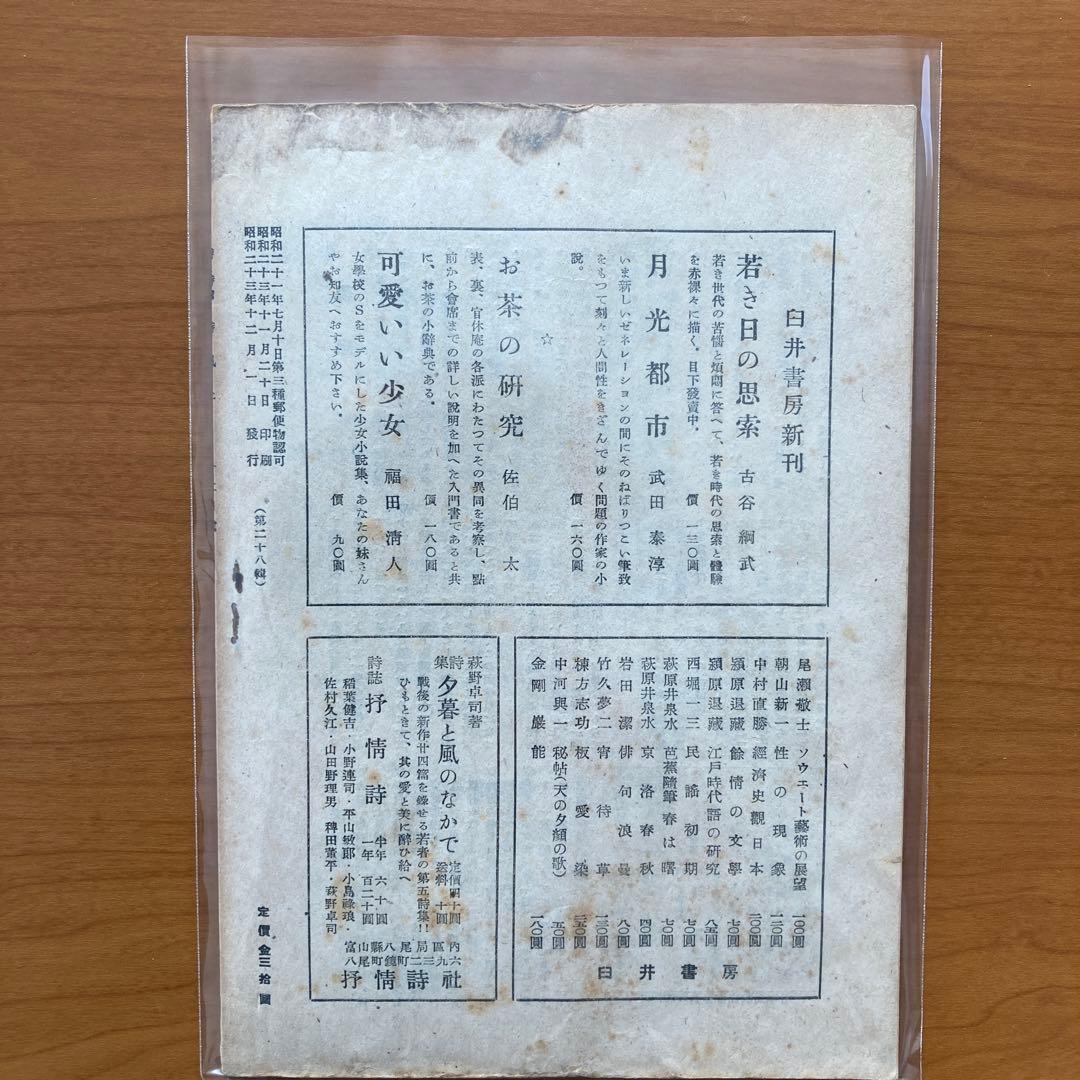 臼井書房新刊
若き日の思索 古谷綱武
若き世代の苦惱と煩悶に答へて、若き時代の思索と體驗
を赤裸々に描く。目下發賣中。 價 一三〇圓
月光都市 武田泰淳
いま新しいゼネレーションの間にそのねばりつこい筆致
をもつて刻々と人間性をきざんでゆく問題の作家の小
說。 價 一六〇圓
☆
お茶の研究 佐伯太
表、裏、官休庵の各派にわたつてその異同を考察し、點
前から會席までの詳しい說明を加へた入門書であると共
に、お茶の小辭典である。 價 一八〇圓
可愛いい少女 福田淸人
女學校のSをモデルにした少女小說集、あなたの妹さん
やお知友へおすすめ下さい。 價 九〇圓
尾瀨敬士 ソウエート藝術の展望 一〇〇圓
朝山新一 性の現象 一二〇圓
中村直勝 經濟史觀日本 二〇〇圓
潁原退藏 餘情の文學 七〇圓
潁原退藏 江戶時代語の硏究 八五圓
西堀一三 民謠初期 七〇圓
萩原井泉水 芭蕉隨筆春は曙 七〇圓
萩原井泉水 京洛春秋 四〇圓
岩田潔 俳句浪曼 八〇圓
竹久夢二 宵待草 一三〇圓
棟方志功 板愛染 二五〇圓
中河與一 秘帖(天の夕顏の歌) 五〇圓
金剛巖 能 一八〇圓
臼井書房
萩野卓司著
詩集 夕暮と風のなかで 定價四十圓 送料十圓
戰後の新作廿四篇を錄せる若者の第五詩集!!
ひもときて、其の愛と美に醉ひ給へ
詩誌 抒情詩 半年 六十圓 一年 百二十圓
稻葉健吉・小野連司・平山敏郎・小島祿琅・
佐村久江・山田野理男 稗田菫平・萩野卓司
富山縣八尾局區內
八尾町鏡二三九六
抒情詩社
昭和二十一年七月十日第三種郵便物認可
昭和二十三年十一月二十日 印刷
昭和二十三年十二月一日 發行
(第二十八輯)
定價金三拾圓